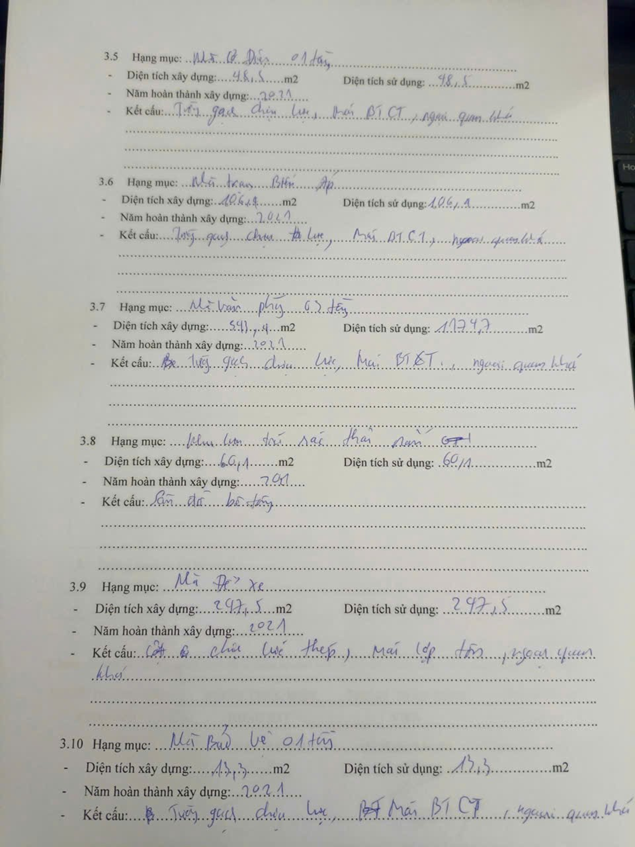 3.5 Hạng mục: Nhà Cơ Điện 01 tầng
- Diện tích xây dựng: 48,5 m2 Diện tích sử dụng: 48,5 m2
- Năm hoàn thành xây dựng: 2021
- Kết cấu: Tường gạch chịu lực, Mái BTCT, ngoại quan khá
3.6 Hạng mục: Nhà trạm Biến Áp
- Diện tích xây dựng: 106,1 m2 Diện tích sử dụng: 106,1 m2
- Năm hoàn thành xây dựng: 2021
- Kết cấu: Tường gạch chịu lực, Mái BTCT, ngoại quan khá
3.7 Hạng mục: Nhà văn phòng 03 tầng
- Diện tích xây dựng: m2 Diện tích sử dụng: 1174,7 m2
- Năm hoàn thành xây dựng: 2021
- Kết cấu: Tường gạch chịu lực, Mái BTCT, ngoại quan khá
3.8 Hạng mục: Khu lưu trữ rác thải
- Diện tích xây dựng: 60,1 m2 Diện tích sử dụng: 60,1 m2
- Năm hoàn thành xây dựng:
- Kết cấu: bê tông
3.9 Hạng mục: Nhà Để xe
- Diện tích xây dựng: 247,5 m2 Diện tích sử dụng: 247,5 m2
- Năm hoàn thành xây dựng: 2021
- Kết cấu: Cột chịu lực thép, mái lợp tôn, ngoại quan
khá
3.10 Hạng mục: Nhà Bảo vệ 01 tầng
- Diện tích xây dựng: 13,3 m2 Diện tích sử dụng: 13,3 m2
- Năm hoàn thành xây dựng: 2021
- Kết cấu: Tường gạch chịu lực, Mái BTCT, ngoại quan khá